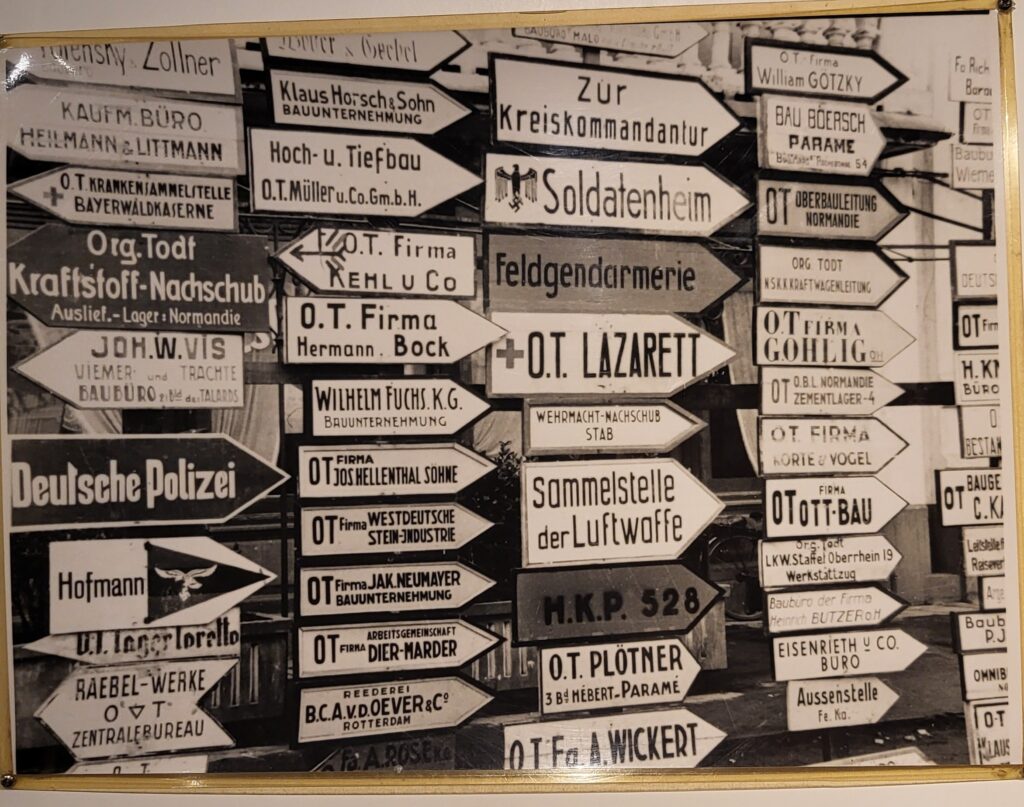 Zollner
KAUFM. BÜRO
HEILMANN & LITTMANN
O.T. KRANKENSAMMELSTELLE
BAYERWALDKASERNE
Org. Todt
Kraftstoff-Nachschub
Auslief.-Lager: Normandie
JOH.W.VIS
VIEMER und TRACHTE
BAUBÜRO
TALARDS
Deutsche Polizei
Hofmann
O.T. Lager Loretto
RAEBEL-WERKE
O T
ZENTRALEBUREAU
Klaus Horsch & Sohn
BAUUNTERNEHMUNG
Hoch- u. Tiefbau
O.T. Müller u. Co. G.m.b.H.
O.T. Firma
KEHL U CO
O.T. Firma
Hermann. Bock
WILHELM FUCHS. K.G.
BAUUNTERNEHMUNG
OT FIRMA
JOS HELLENTHAL SÖHNE
OT Firma WESTDEUTSCHE
STEIN-INDUSTRIE
OT Firma JAK. NEUMAYER
BAUUNTERNEHMUNG
OT FIRMA ARBEITSGEMEINSCHAFT
DIER-MARDER
REEDEREI
B.C.A.V.D. OEVER & Co
ROTTERDAM
Fa. A. ROSE
Zur
Kreiskommandantur
Soldatenheim
Feldgendarmerie
O.T. LAZARETT
WEHRMACHT-NACHSCHUB
STAB
Sammelstelle
der Luftwaffe
H.K.P. 528
O.T. PLÖTNER
3 Bd HÉBERT-PARAMÉ
O.T. Fa A. WICKERT
O.T. Firma
William GÖTZKY
BAU BÖERSCH
PARAME
OT OBERBAULEITUNG
NORMANDIE
ORG. TODT
N.S.K.K. KRAFTWAGENLEITUNG
O.T FIRMA
GOHLIG
OT O.B.L. NORMANDIE
ZEMENTLAGER-4
OT. FIRMA
KORTE & VOGEL
OT FIRMA
OTT-BAU
Org. Todt
LKW. Staffel Oberrhein 19
Werkstättzug
Baubüro der Firma
Heinrich BUTZER
EISENRIETH U CO.
BÜRO
Aussenstelle
Fe. Ka.
Fa Rich
OT
H.K
BÜRO
OT BAUGE
C. KA
P.J
OMNIB
O.T